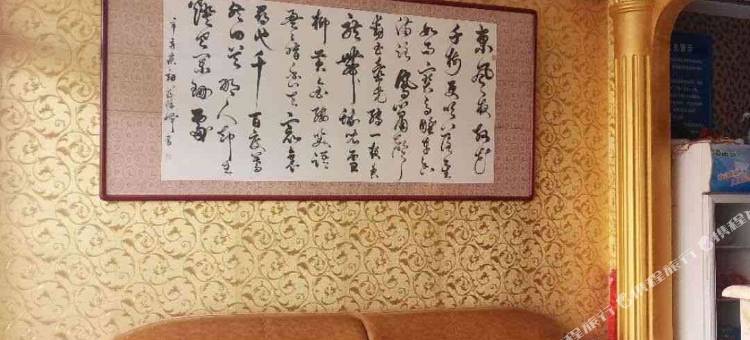 東風夜放花
千樹更吹落星
如雨寶馬雕車香
滿路鳳簫聲
動玉壺光轉一夜魚
龍舞蛾兒雪
柳黃金縷笑語
盈盈暗香去衆裏
尋他千百度驀
然回首那人却在
燈火闌珊處
辛弃疾詞
携程旅行
携程旅行